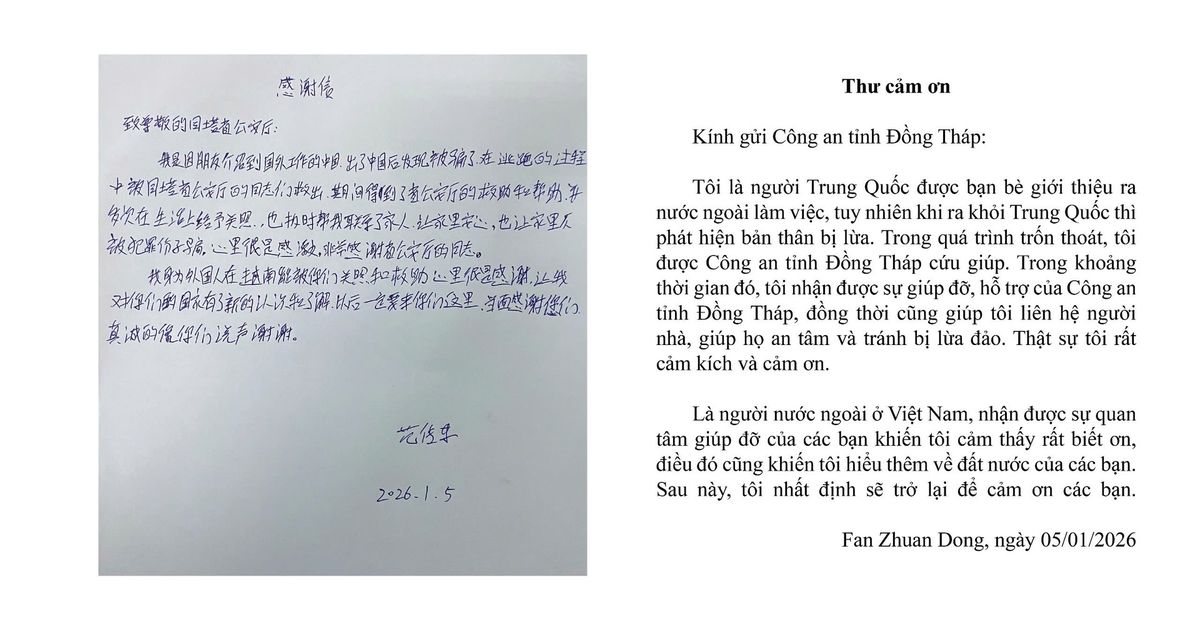 感谢信
致尊敬的同塔省公安厅:
我是因朋友介绍到国外工作的中国.出了中国后发现被骗了.在逃跑的过程
中被同塔省公安厅的同志们救出.其间得到了省公安厅的救助和帮助.并
多次在生活上给予关照.也 时帮我联系了家人.让家里安心,也让家里不
被犯罪份子骗.心里很是感激.非常感谢省公安厅的同志。
我身为外国人在越南能被你们关照和救助心里很是感谢.让我
对你们的国家有了新的认识和了解.以后一定要来你们这里.当面感谢你们
真诚的像你们说声谢谢。
范传东
2026.1.5
Thư cảm ơn
Kính gửi Công an tỉnh Đồng Tháp:
Tôi là người Trung Quốc được bạn bè giới thiệu ra
nước ngoài làm việc, tuy nhiên khi ra khỏi Trung Quốc thì
phát hiện bản thân bị lừa. Trong quá trình trốn thoát, tôi
được Công an tỉnh Đồng Tháp cứu giúp. Trong khoảng
thời gian đó, tôi nhận được sự giúp đỡ, hỗ trợ của Công an
tỉnh Đồng Tháp, đồng thời cũng giúp tôi liên hệ người
nhà, giúp họ an tâm và tránh bị lừa đảo. Thật sự tôi rất
cảm kích và cảm ơn.
Là người nước ngoài ở Việt Nam, nhận được sự quan
tâm giúp đỡ của các bạn khiến tôi cảm thấy rất biết ơn,
điều đó cũng khiến tôi hiểu thêm về đất nước của các bạn.
Sau này, tôi nhất định sẽ trở lại để cảm ơn các bạn.
Fan Zhuan Dong, ngày 05/01/2026